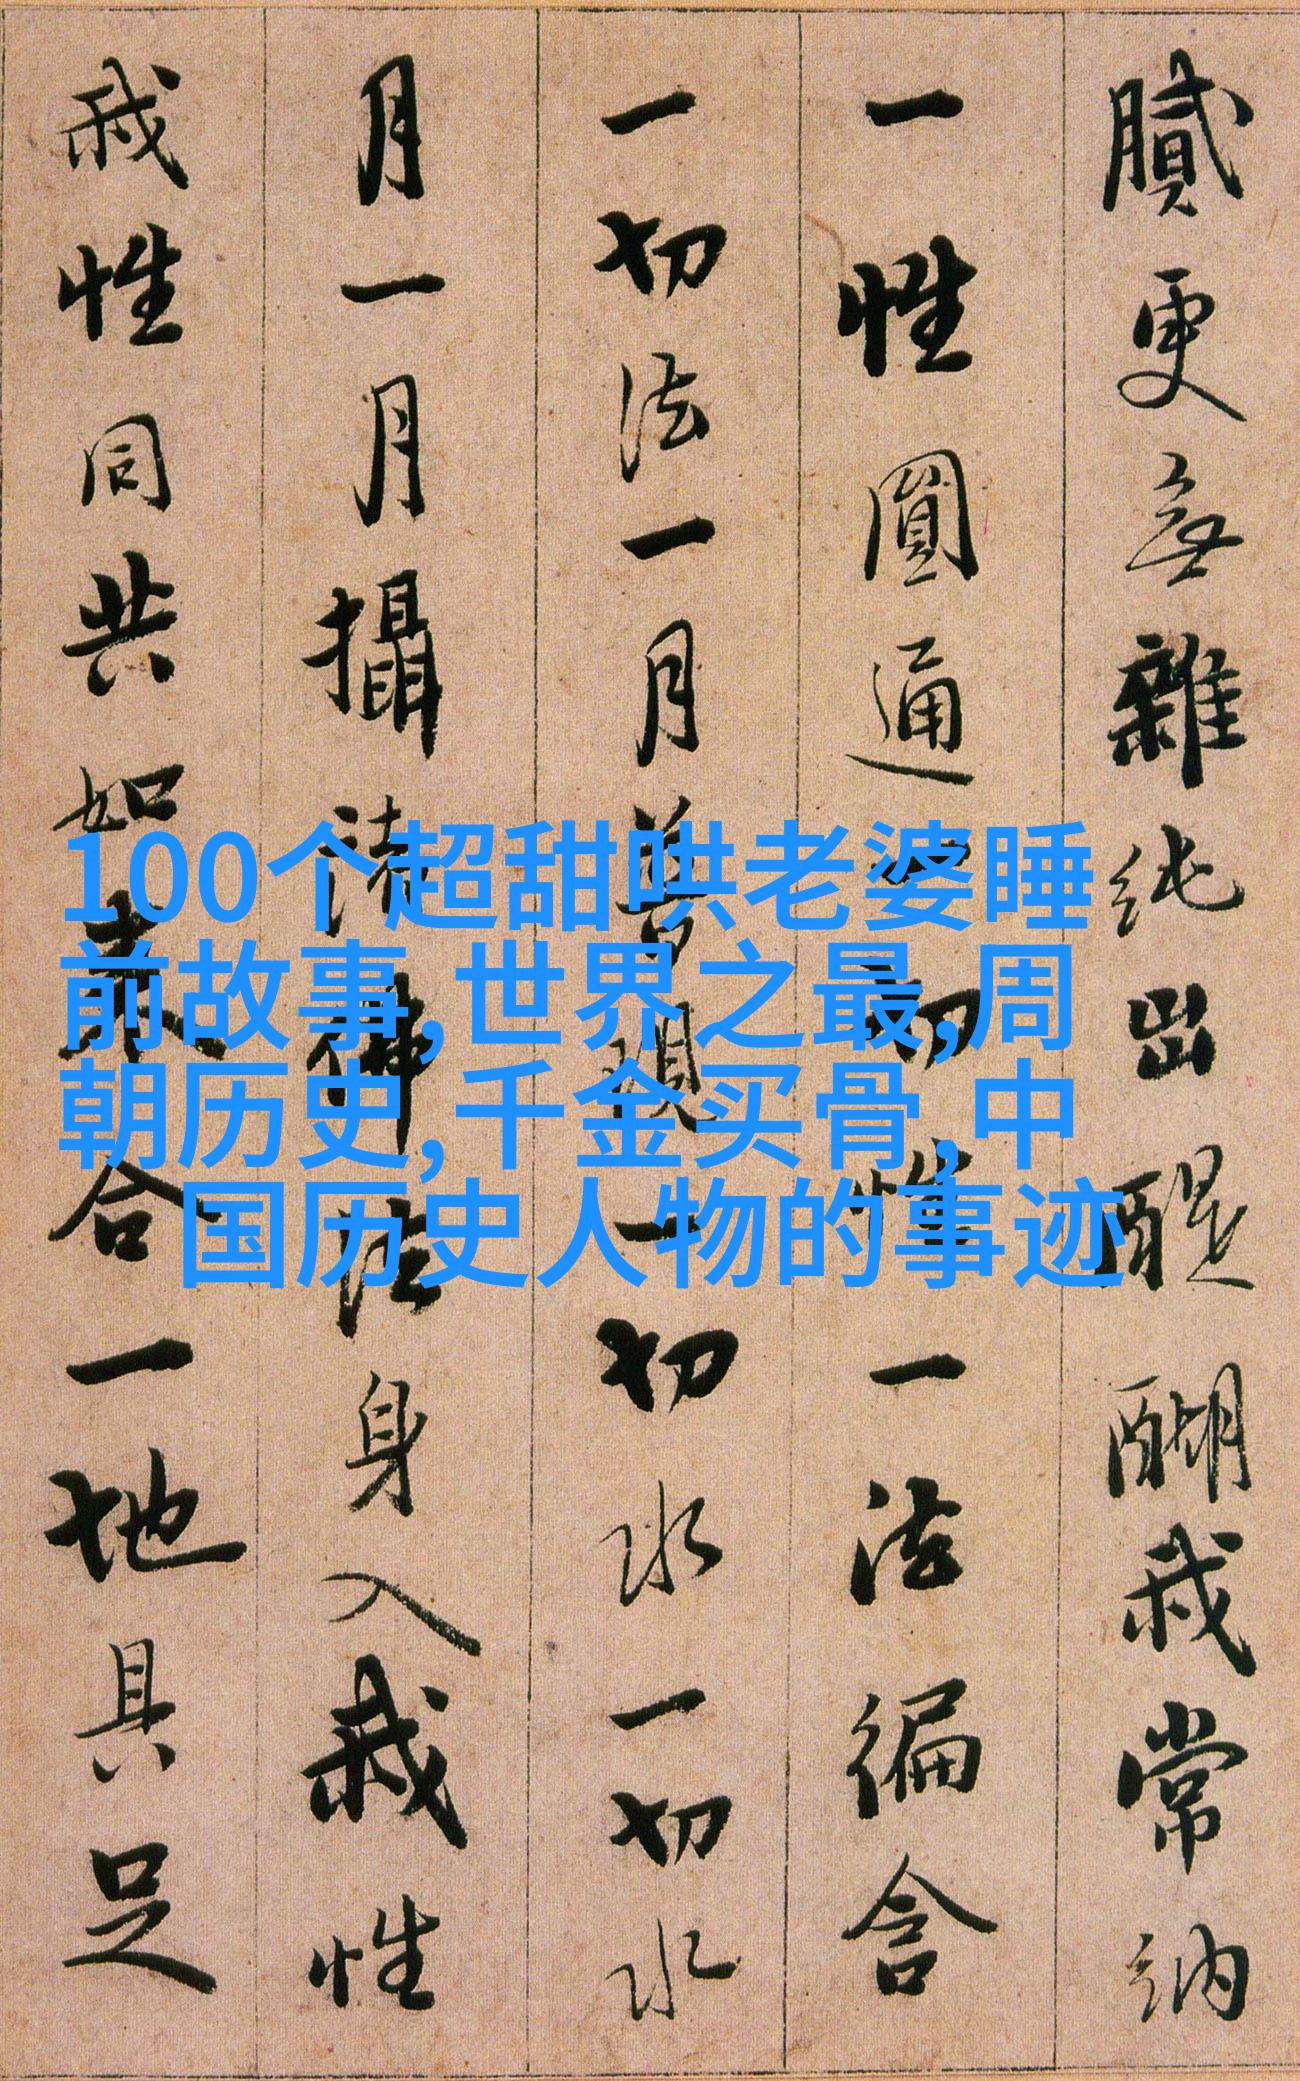 膩更無雜純出醍醐我常納
一性圓通一切性一法徧含
一切法一月普現一切水一切水
月一月攝諸佛法身入我性
我性同共如来合一地具足
100个超甜哄老婆睡
前故事,世界之最,周
朝历史,千金买骨,中
国历史人物的事迹